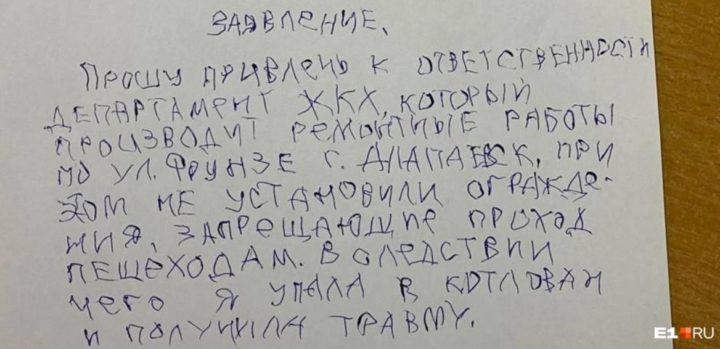 ЗАЯВЛЕНИЕ.
ПРОШУ ПРИВЛЕЧЬ К ОТВЕТСТВЕННОСТИ
ДЕПАРТАМЕНТ ЖКХ, КОТОРЫЙ
ПРОИЗВОДИТ РЕМОНТНЫЕ РАБОТЫ
ПО УЛ. ФРУНЗЕ Г. АЛАПАЕВСК, ПРИ
ЭТОМ НЕ УСТАНОВИЛИ ОГРАЖДЕ-
НИЯ, ЗАПРЕЩАЮЩИЕ ПРОХОД
ПЕШЕХОДАМ. В СЛЕДСТВИИ
ЧЕГО Я УПАЛА В КОТЛОВАН
И ПОЛУЧИЛА ТРАВМУ.
E1.RU